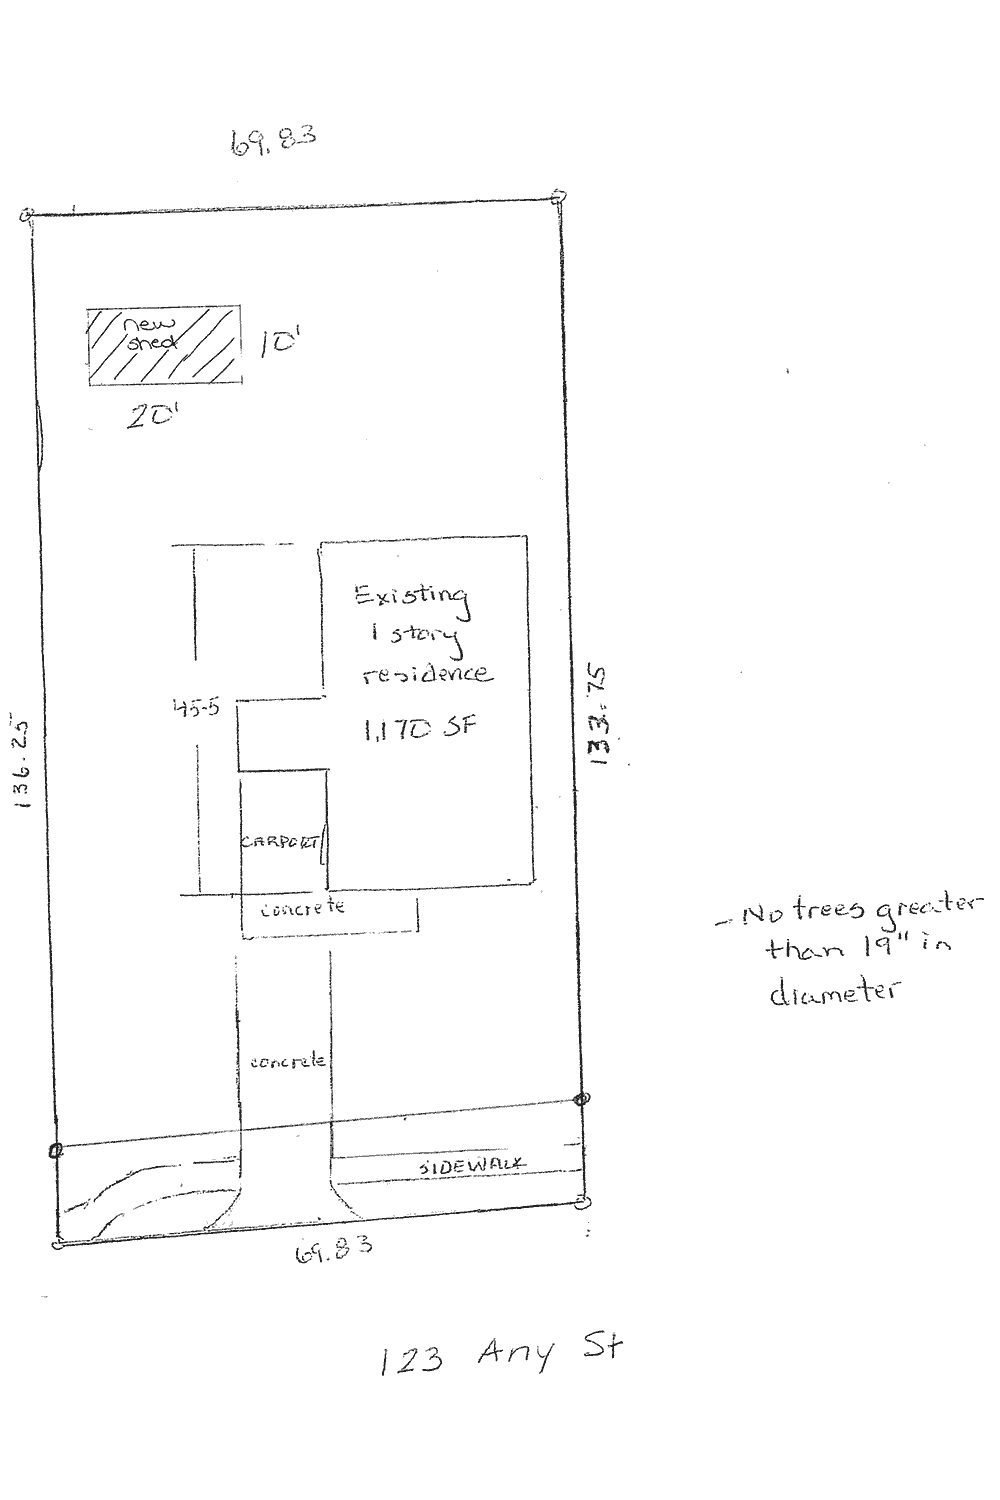 69.83
new
shed
10'
20'
Existing
1 story
residence
1,170 SF
45-5
136.25
133.75
CARPORT
concrete
- No trees greater
than 19" in
diameter
concrete
SIDEWALK
69.83
123 Any St